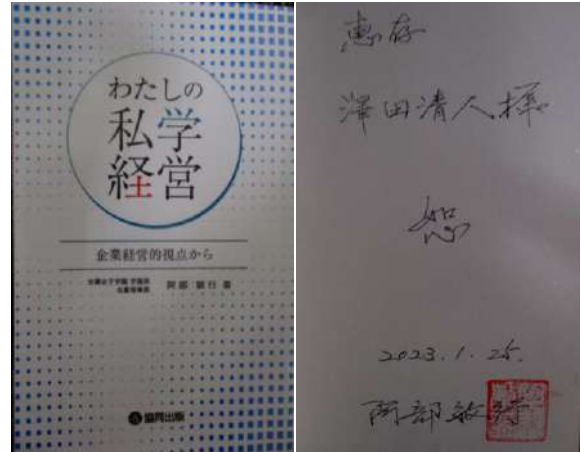 わたしの
私学
経営
企業経営的視点から
阿部 敏行 著
協同出版
恵存
澤田清人様
恕
2023.1.25.
阿部敏行